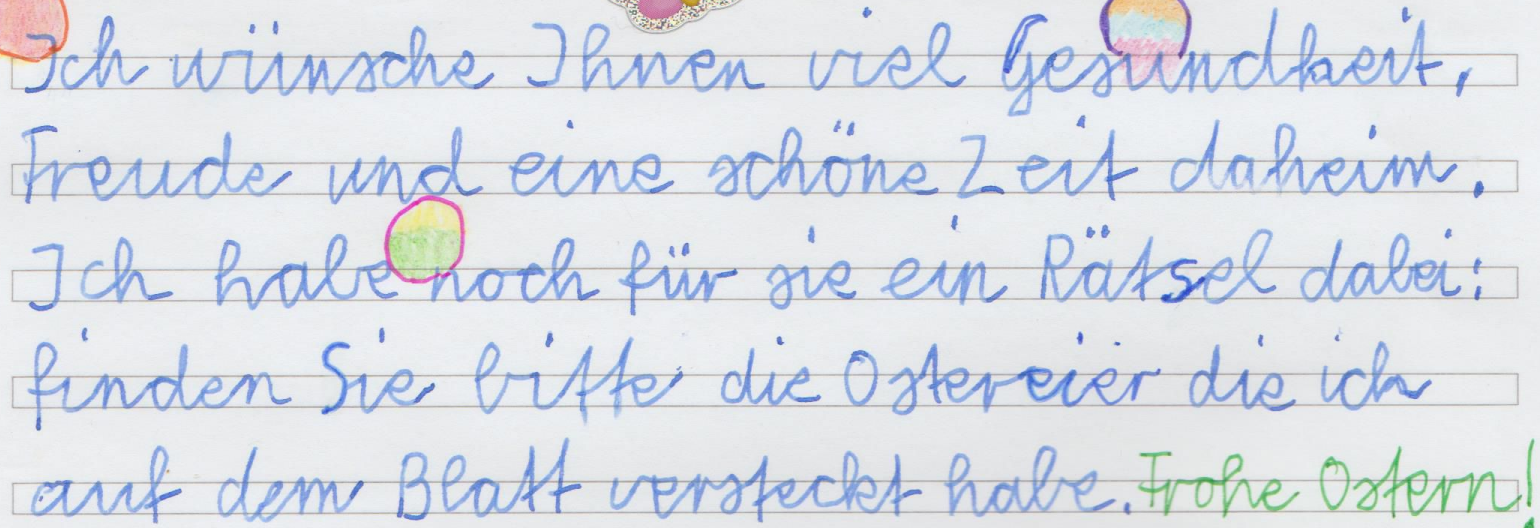 Ich wünsche Ihnen viel Gesundheit,
Freude und eine schöne Zeit daheim.
Ich habe noch für sie ein Rätsel dabei:
finden Sie bitte die Ostereier die ich
auf dem Blatt versteckt habe. Frohe Ostern!